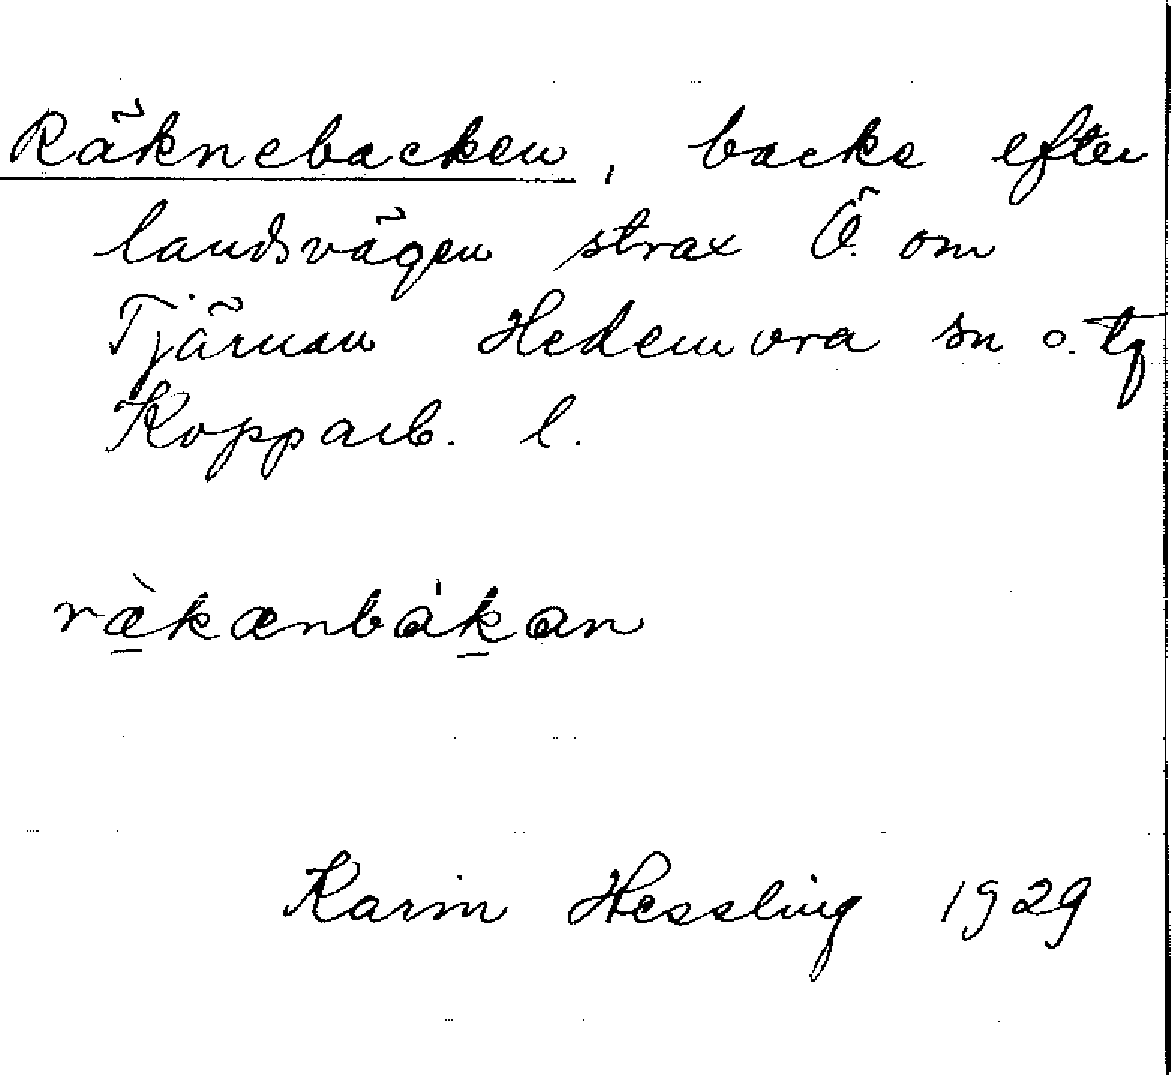 Räknebacken, backe efter
landsvägen strax Ö. om
Tjärnan Hedemora sn o. tg
Kopparb. l.
ræ̀kænbákan
Karin Hessling 1929